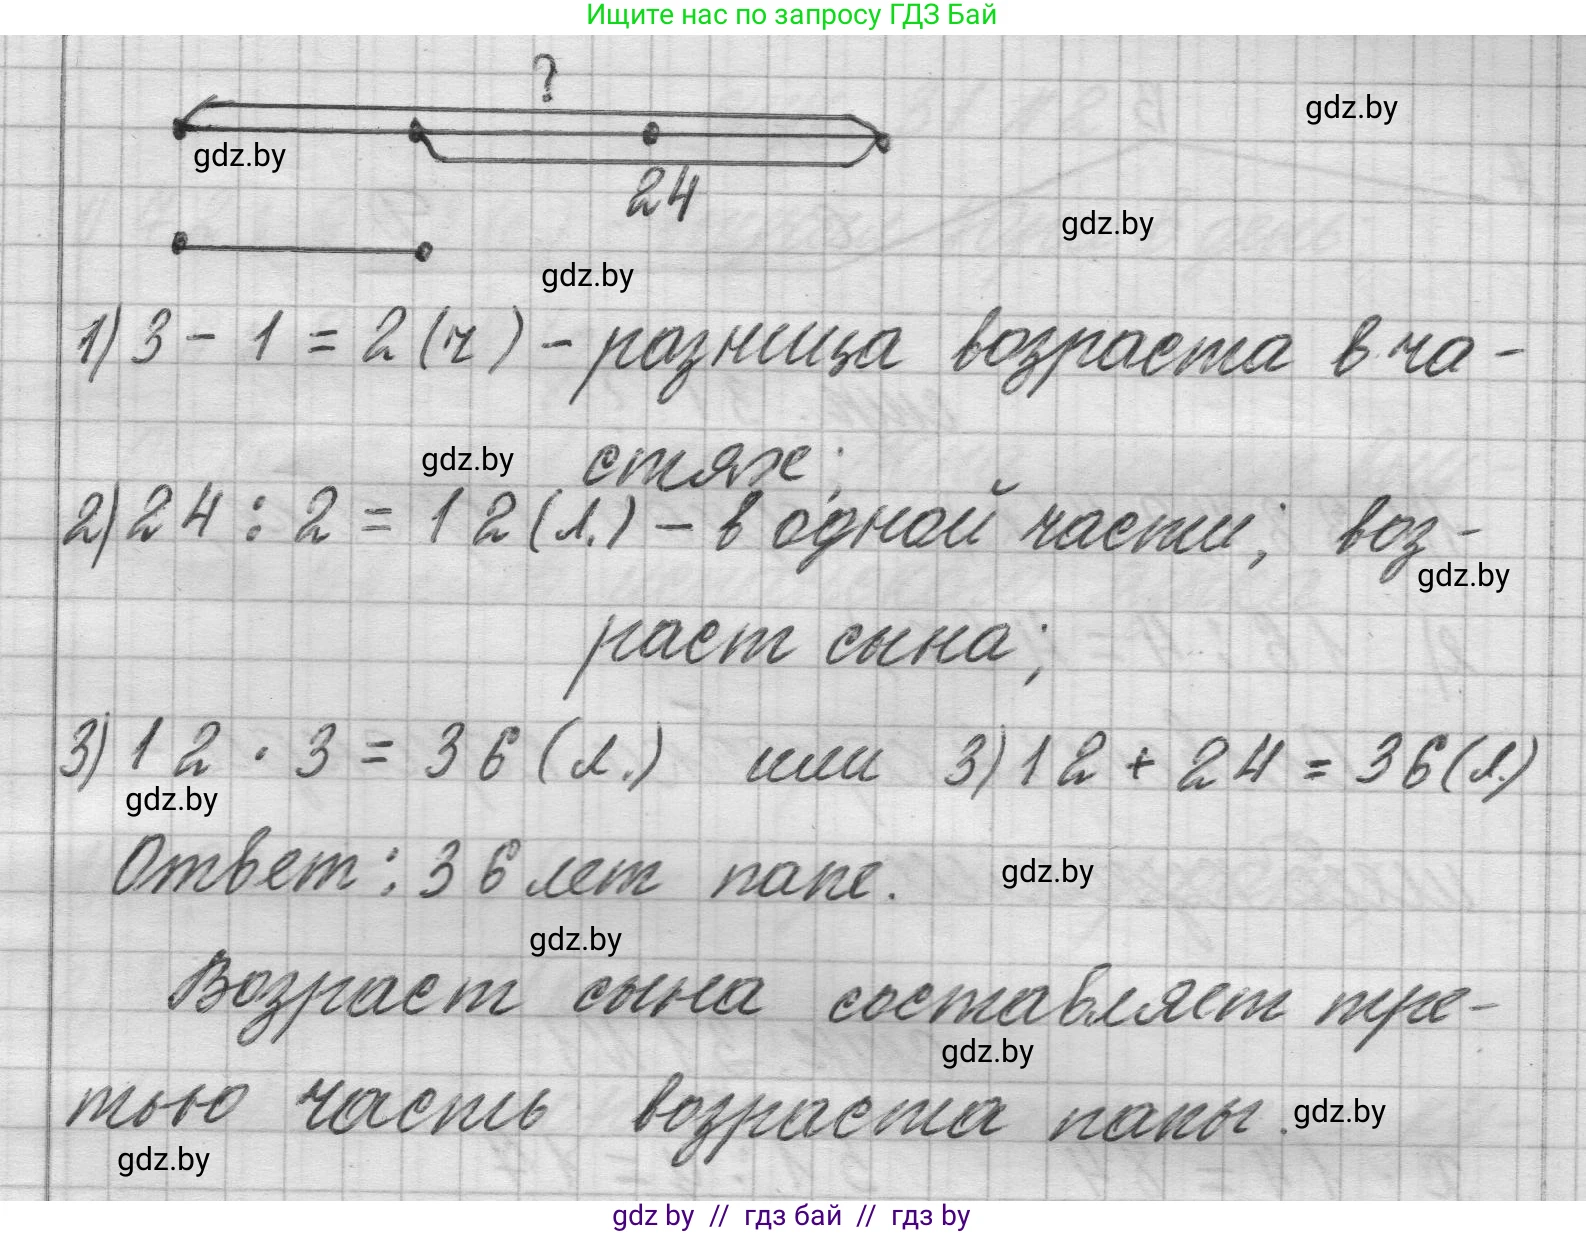 Ищите нас по запросу ГДЗ Бай
?
gdz.by
gdz.by
24
gdz.by
gdz.by
1) 3 - 1 = 2 (ч) - разница возраста в ча-
gdz.by
стях;
2) 24 : 2 = 12 (л.) - в одной части; воз-
gdz.by
раст сына;
3) 12 · 3 = 36 (л.) или 3) 12 + 24 = 36 (л.)
gdz.by
Ответ: 36 лет папе.
gdz.by
gdz.by
Возраст сына составляет тре-
gdz.by
тью часть возраста папы.
gdz.by
gdz.by
gdz by // гдз бай // гдз by